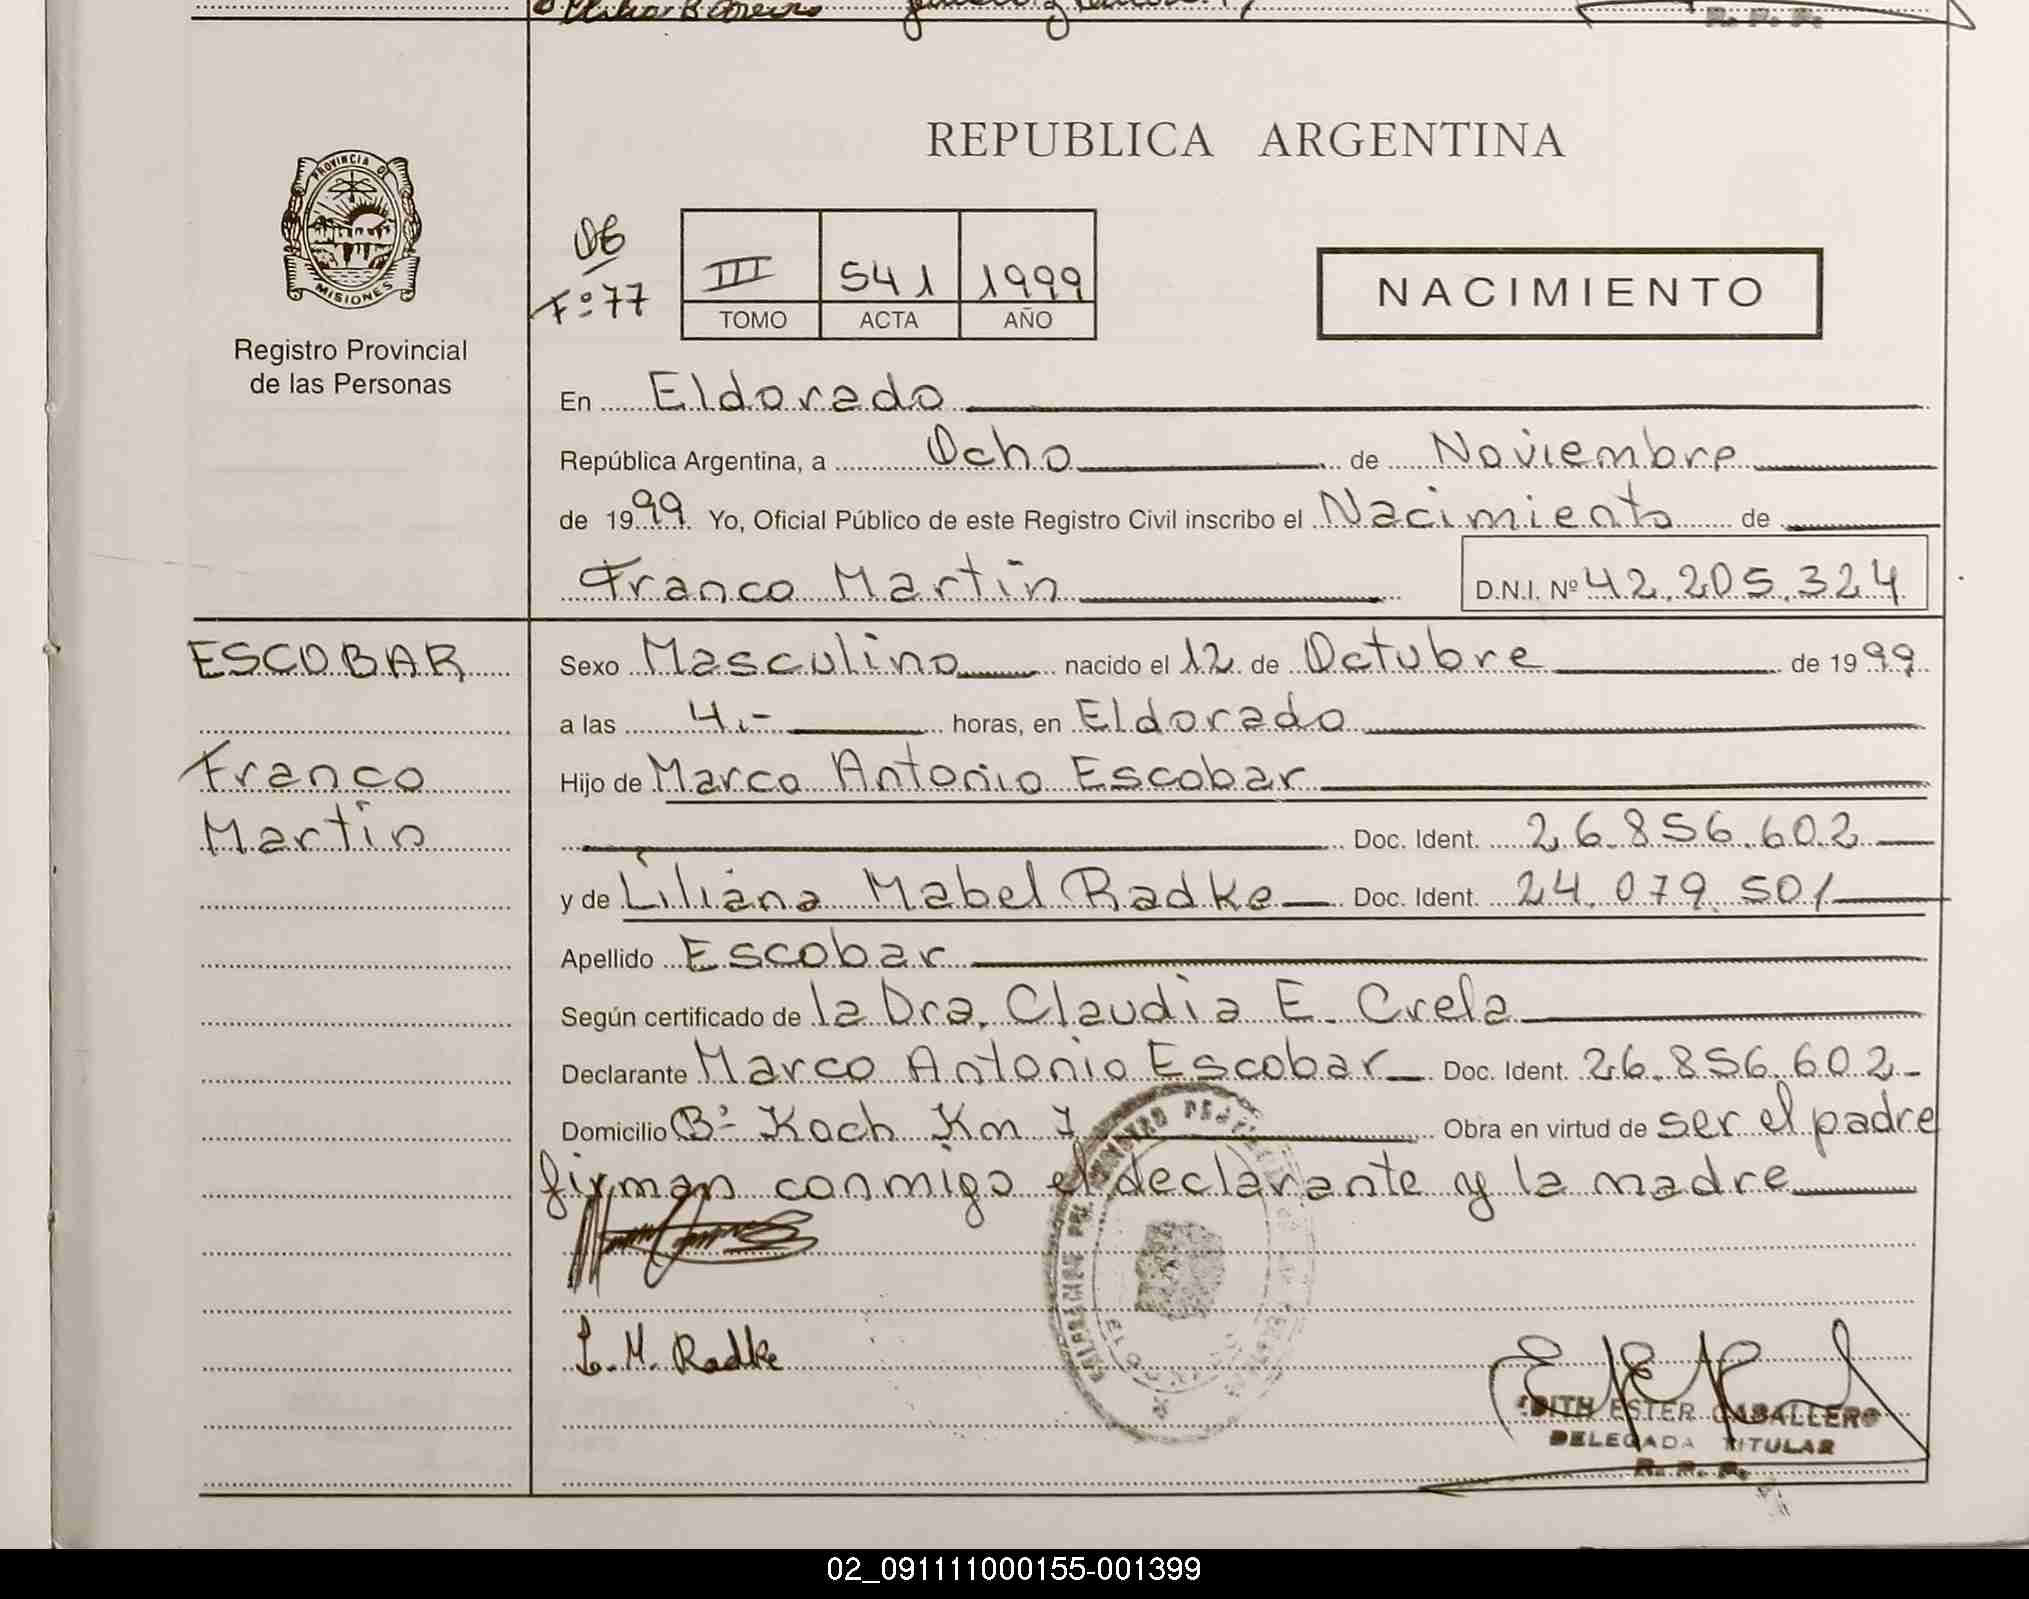 R. P. P.
REPUBLICA ARGENTINA
PROVINCIA DE
MISIONES
Registro Provincial
de las Personas
06
Fº 77
III 541 1999
TOMO ACTA AÑO
NACIMIENTO
En Eldorado
República Argentina, a Ocho de Noviembre
de 1999. Yo, Oficial Público de este Registro Civil inscribo el Nacimiento de
Franco Martin D.N.I. Nº 42.205.324
ESCOBAR
Franco
Martin
Sexo Masculino nacido el 12 de Octubre de 1999
a las 4.- horas, en Eldorado
Hijo de Marco Antonio Escobar
Doc. Ident. 26.856.602
y de Liliana Mabel Radke Doc. Ident. 24.079.501
Apellido Escobar
Según certificado de la Dra. Claudia E. Crela
Declarante Marco Antonio Escobar Doc. Ident. 26.856.602
Domicilio Bº Koch Km 7 Obra en virtud de ser el padre
firman conmigo el declarante y la madre
L. M. Radke
EDITH ESTER CABALLERO
DELEGADA TITULAR
R. P. P.
02_091111000155-001399